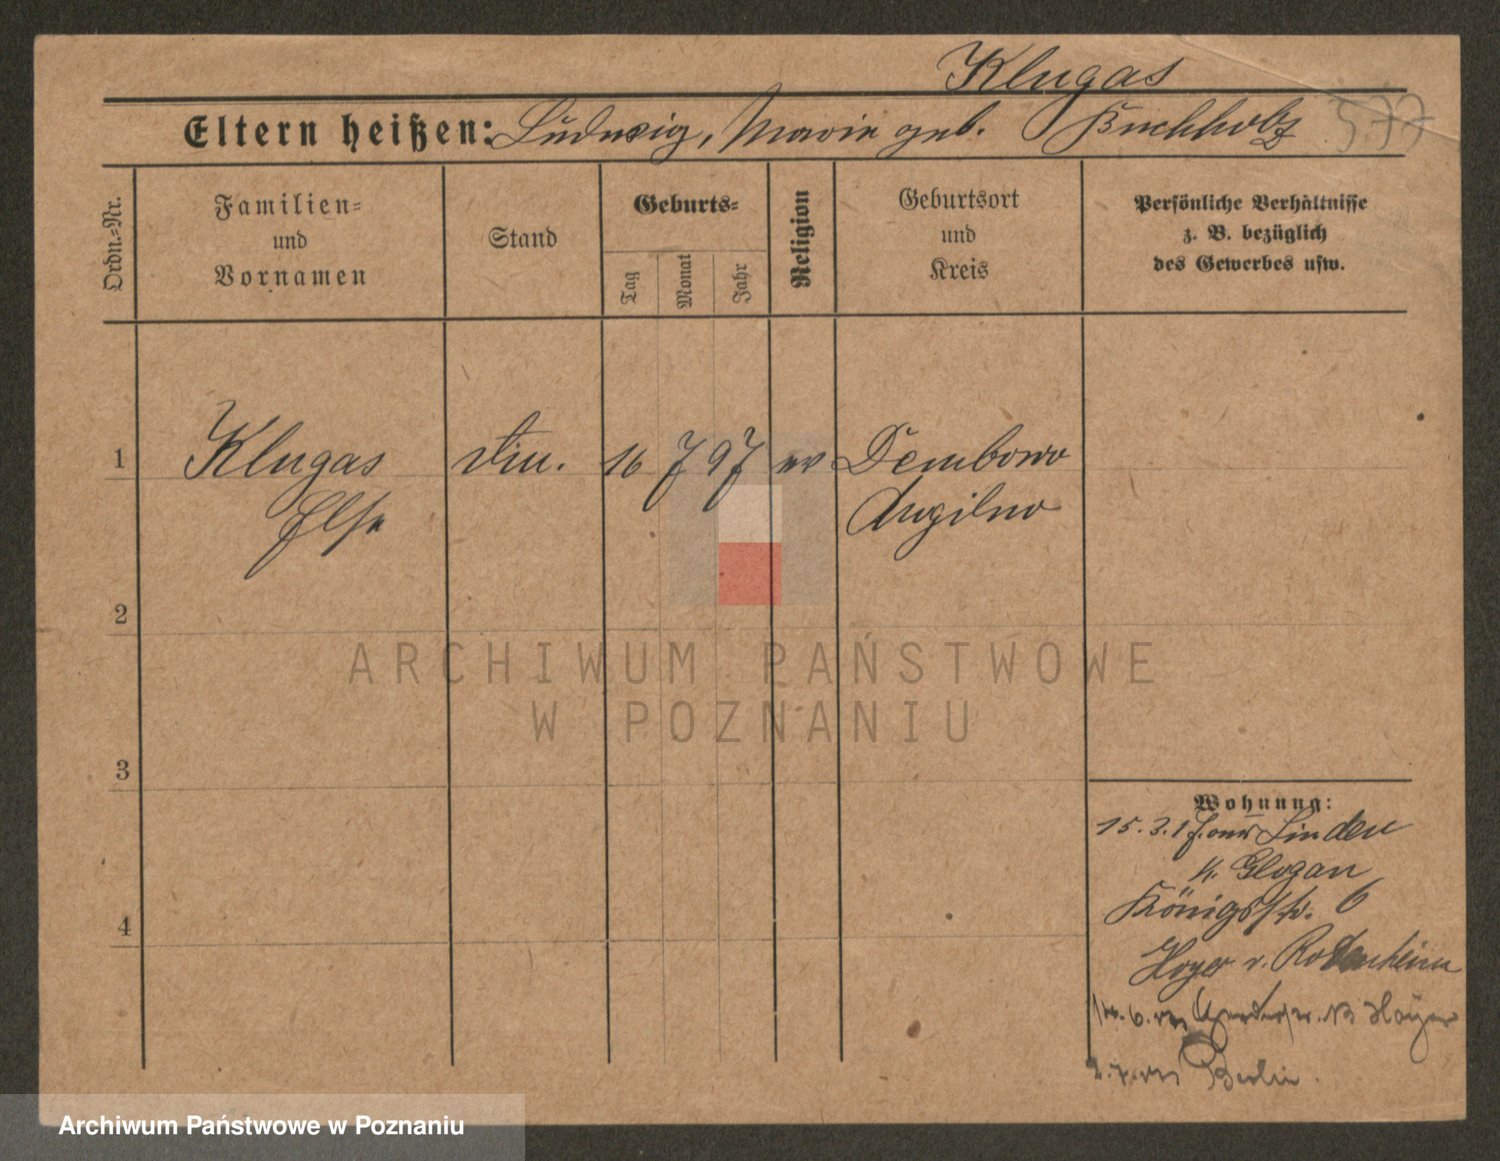 Klugas
Eltern heißen: Ludwig, Marie geb. Buchholz 577
Ordn.=Nr.
Familien=
und
Vornamen
Stand
Geburts=
Tag
Monat
Jahr
Religion
Geburtsort
und
Kreis
Persönliche Verhältnisse
z. B. bezüglich
des Gewerbes usw.
1 Klugas 16 7 97 ev Dembowo
Else
2
3
4
Wohnung:
15.3.17. Linden
k. Glogau
Königsstr. 6
Hoyer v. Rotenheim
6. Hoyer
2.7. Berlin.
ARCHIWUM PAŃSTWOWE
W POZNANIU
Archiwum Państwowe w Poznaniu